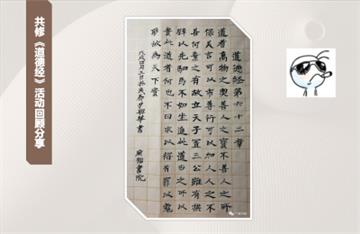 共修《道德经》活动回顾分享
道德经第六十二章
道者万物之奥善人之宝不善人之所
保美言可以市尊行可以加人人之不
善何弃之有故立天子置三公虽有拱
璧以先驷马不如坐进此道古之所以
贵此道者何也不曰求以得有罪以免
耶故为天下贵